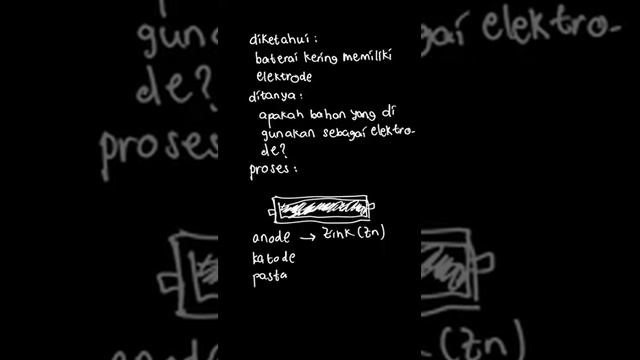 diketahui :
baterai kering memiliki
elektrode
ditanya :
apakah bahan yang di
gunakan sebagai elektro-
de?
proses :
anode → Zink (Zn)
katode
pasta